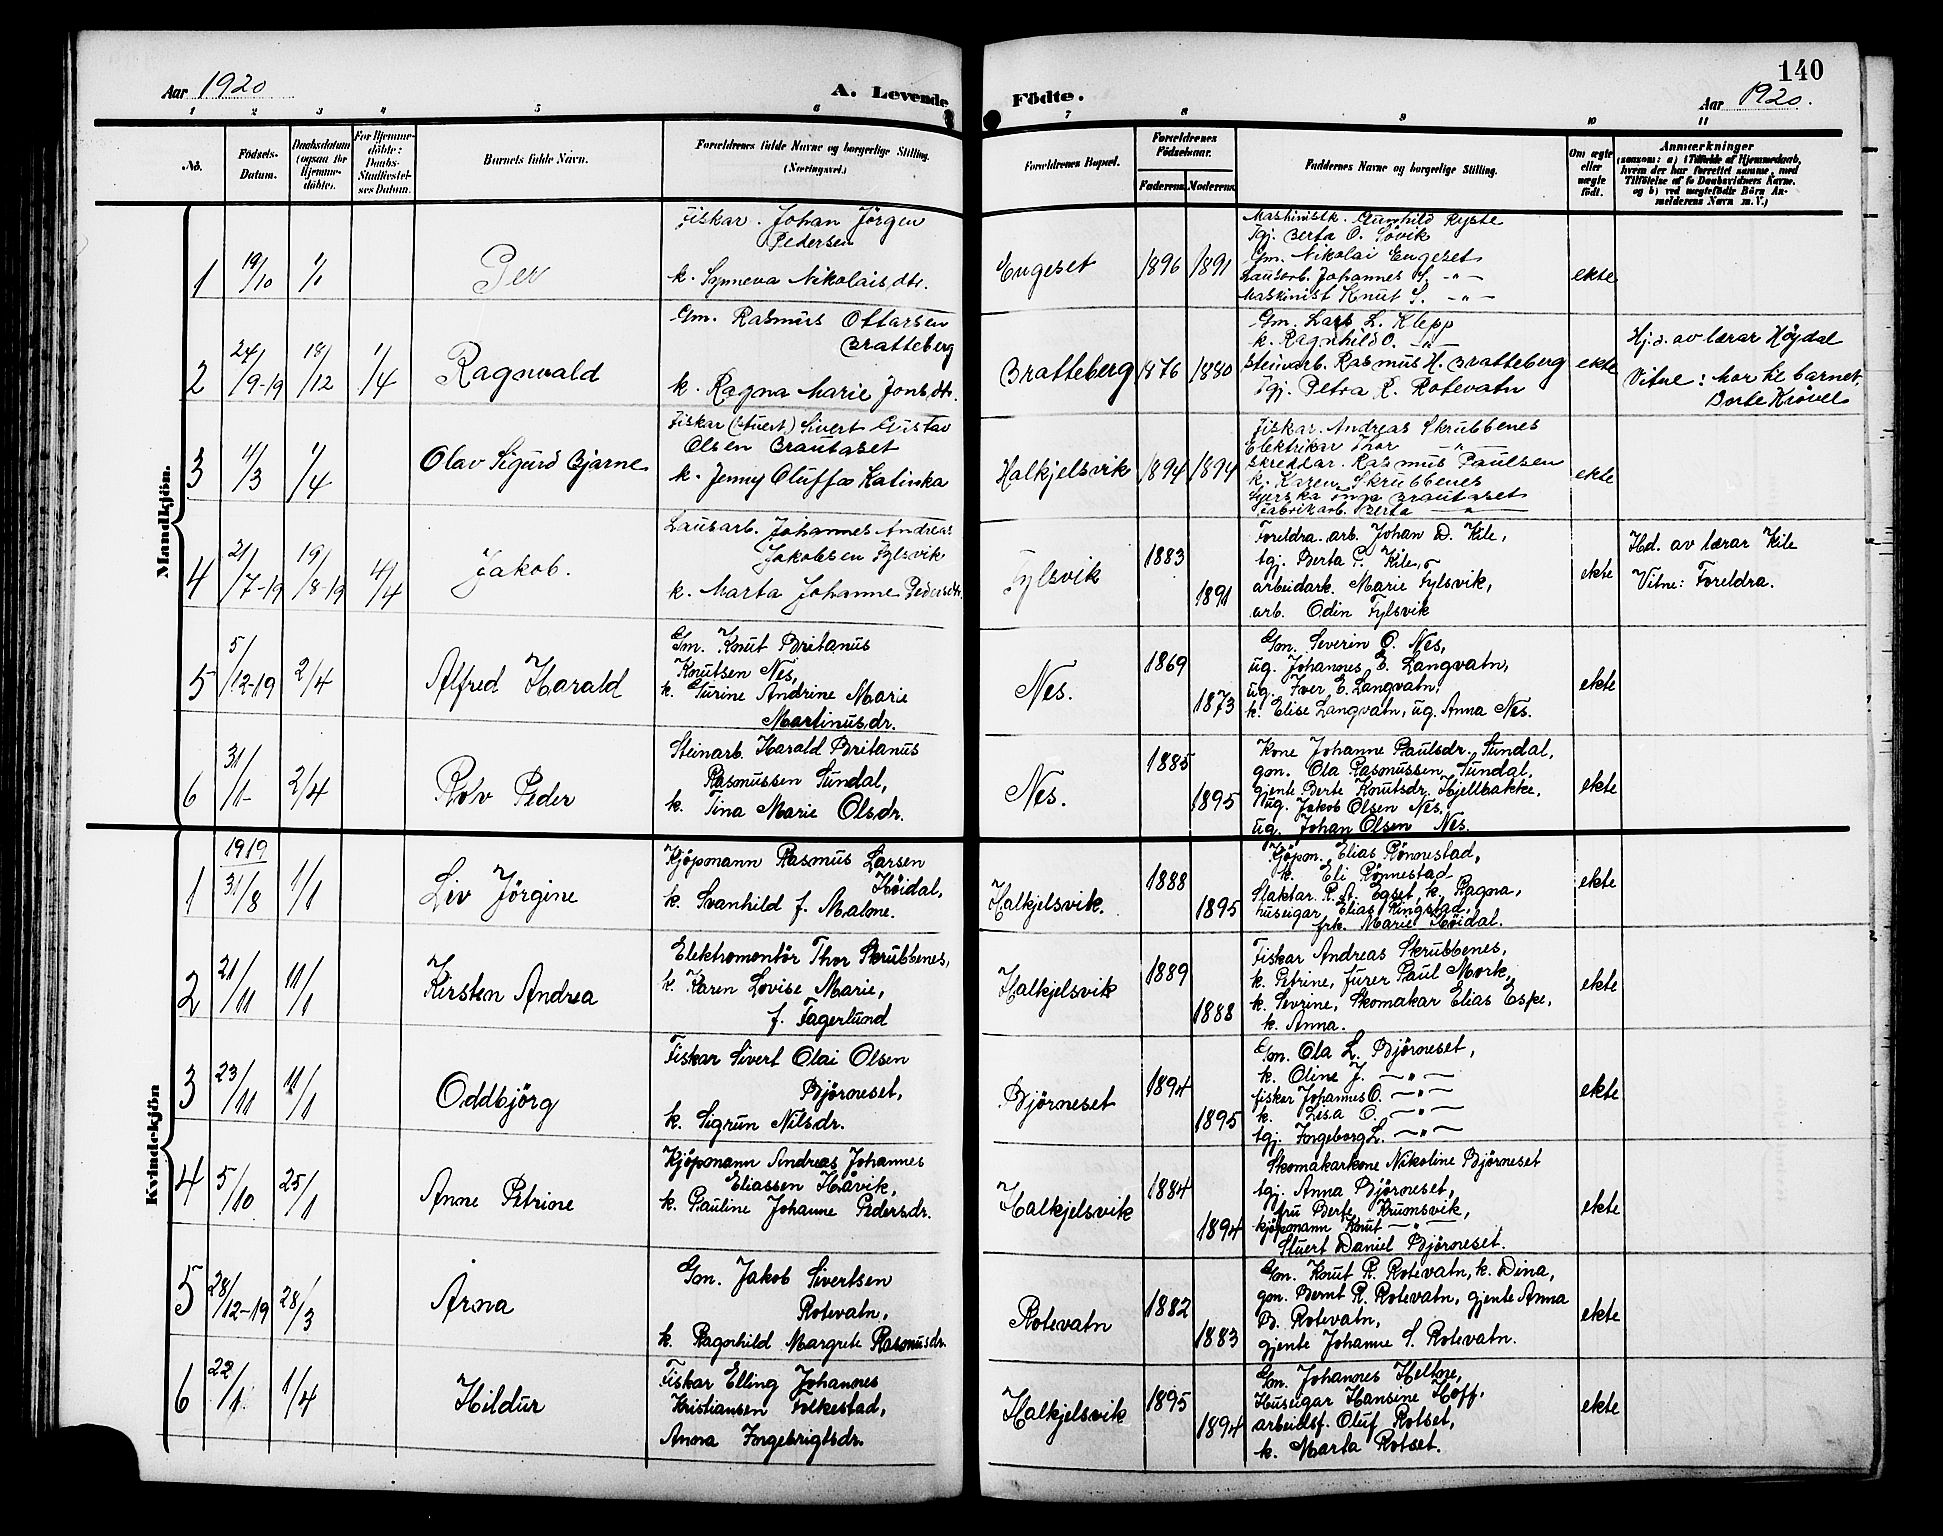 140
Aar 1920
A. Levende Födte.
Aar 1920.
1 2 3 4 5 6 7 8 9 10 11
No.
Födsels-Datum.
Daabsdatum (ogsaa for Hjemme-döbte.
For Hjemme-döbte: Daabs-Stadfæstel-ses Datum.
Barnets fulde Navn.
Forældrenes fulde Navne og borgerlige Stilling.
(Næringsvei.)
Forældrenes Bopæl.
Forældrenes Födselsaar.
Faderens. Moderens.
Faddernes Navne og borgerlige Stilling.
Om ægte eller uægte födt.
Anmærkninger
(saasom: a) i Tilfælde af Hjemmedaab, hvem der har forrettet samme, med Tilföielse af to Daabsvidners Navne. og b) ved uægtefödte Börn An-melderens Navn m. V.)
Mandkjön.
1 19/10 1/1 Per
Fiskar. Johan Jörgen
Pedersen
k. Synneva Nikolaisdtr.
Engeset 1896 1891
Maskinistk. Gunhild Ryste
Tgj. Berta O. Sövik
Gm. Nikolai Engeset
Lausarb. Johannes S. -"-
Maskinist Knut S. -"-
ekte
2 24/9-19 18/12 1/4 Ragnvald
Gm. Rasmus Ottarsen
Bratteberg
k. Ragna Marie Jonsdtr.
Bratteberg 1876 1880
Gm. Lars L. Klepp
k. Ragnhild O. -"-
Steinarb. Rasmus H. Bratteberg
Tgj. Petra R. Rotevatn
ekte
Hj.d. av lærar Höydal
Vitne: Mor til barnet,
Berte Krövel
3 11/3 1/4 Olav Sigurd Bjarne
Fiskar (stuert) Sivert Gustav
Olsen Brautaset
k. Jenny Oluffa Katinka
Halkjelsvik 1894 1894
Fiskar. Andreas Skrubbenes
Elektrikar Thor -"-
Skreddar. Rasmus Paulsen
k. Karen Skrubbenes
Syerska Inga Brautaset
Fabrikarb. Berta -"-
ekte
4 21/7-19 19/8-19 4/4 Jakob.
Lausarb. Johannes Andreas
Jakobsen Fylsvik
k. Marta Johanne Pedersdtr.
Fylsvik 1883 1891
Foreldra. arb. Johan D. Kile,
tgj. Berta P. Kile,
arbeidark. Marie Fylsvik,
arb. Odin Fylsvik
ekte
Hd. av lærar Kile
Vitne: Foreldra.
5 5/12-19 2/4 Alfred Harald
Gm. Knut Britanus
Knutsen Nes,
k. Turine Andrine Marie
Martinusdr.
Nes. 1869 1873
Gm. Severin O. Nes,
ug. Johannes E. Langvatn,
ug. Iver E. Langvatn,
k. Elise Langvatn, ug. Anna Nes.
ekte
6 31/1- 2/4 Rolv Peder
Steinarb. Harald Britanus
Rasmussen Sundal,
k. Tina Marie Olsdr.
Nes. 1885 1895
Kone Johanne Paulsdr. Sundal,
gm. Ola Rasmussen Sundal,
gjente Berte Knutsdr. Hjellbakke,
ug. Jakob Olsen Nes,
ug. Johan Olsen Nes.
ekte
Kvindekjön
1 1919 31/8 1/1 Liv Jörgine
Kjöpmann Rasmus Larsen
Höidal,
k. Svanhild f. Malme.
Halkjelsvik. 1888 1895
Kjöpm. Elias Rönnestad,
k. Eli Rönnestad
Slaktar R. A. Egset, k. Ragna,
huseigar Elias Ringstad,
frk. Marie Höidal.
ekte
2 21/11 11/1 Kirsten Andrea
Elektromontör Thor Skrubbenes,
k. Karen Lovise Marie,
f. Fagerlund
Halkjelsvik 1889 1888
Fiskar Andreas Skrubbenes,
k. Petrine, furer Paul Mork,
k. Sevrine, Skomakar Elias Espe,
k. Anna.
ekte
3 23/11 11/1 Oddbjörg
Fiskar Sivert Olai Olsen
Björneset,
k. Sigrun Nilsdr.
Björneset 1894 1895
Gm. Ola L. Björneset,
k. Oline J. -"-
fiskar Johannes O. -"-
k. Lisa O. -"-
tgj. Ingeborg L. -"-
ekte
4 5/10 25/1 Anne Petrine
Kjöpmann Andreas Johannes
Eliassen Håvik,
k. Pauline Johanne Pedersdr.
Halkjelsvik 1884 1894
Skomakarkone Nikoline Björneset
tgj. Anna Björneset,
fru Berte Krumsvik,
kjöpmann Knut -"-
Stuert Daniel Björneset.
ekte
5 28/12-19 28/3 Arna
Gm. Jakob Sivertsen
Rotevatn,
k. Ragnhild Margrete Rasmusdr.
Rotevatn 1882 1883
Gm. Knut R. Rotevatn, k. Dina,
gm. Bernt R. Rotevatn, gjente Anna
B. Rotevatn,
gjente Johanne S. Rotevatn.
ekte
6 22/1 1/4 Hildur
Fiskar Elling Johannes
Kristiansen Folkestad,
Anna Ingebrigtsdr.
Halkjelsvik 1895 1894
Gm. Johannes Heltne,
Huseigar Hansine Hoff,
arbeidsf. Oluf Rotset,
k. Marta Rotset.
ekte